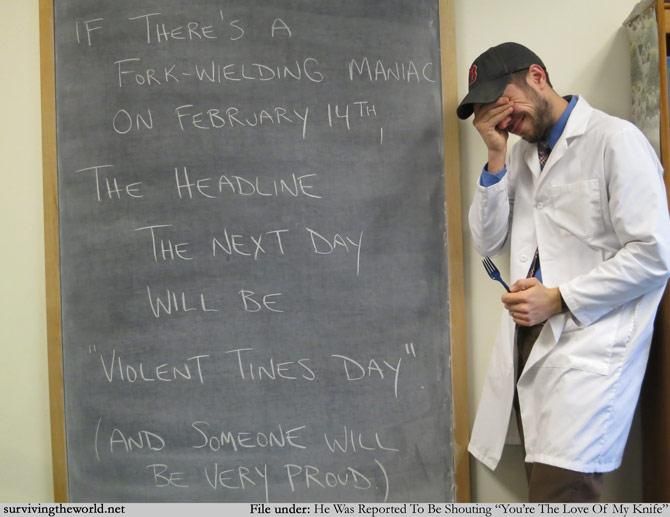 IF THERE'S A
FORK-WIELDING MANIAC
ON FEBRUARY 14TH,
THE HEADLINE
THE NEXT DAY
WILL BE
"VIOLENT TINES DAY".
(AND SOMEONE WILL
BE VERY PROUD.)
survivingtheworld.net File under: He Was Reported To Be Shouting "You're The Love Of My Knife"